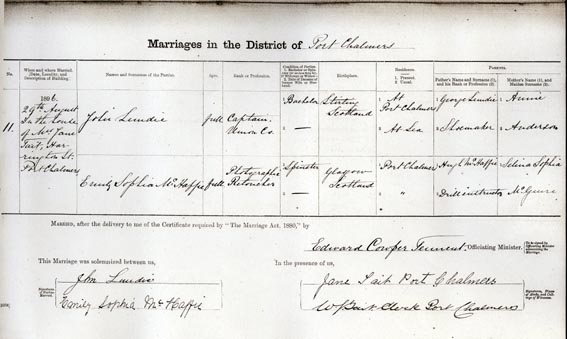 Marriages in the District of Port Chalmers
No.
When and where Married.
(Date, Locality, and
Description of Building).
Names and Surnames of the Parties.
Ages.
Rank or Profession.
Condition of Parties
Birthplace.
Residence.
1. Present.
2. Usual.
Parents.
Father's Name and Surname (1),
and his Rank or Profession (2).
Mother's Name (1), and
Maiden Surname (2).
11.
1886.
29th August
In the house
of Mrs Jane
Tait, Har-
rington St.
Port Chalmers
John Lundie
full
Captain
Union Co.
Bachelor
—
Stirling
Scotland
At
Port Chalmers
At Sea
George Lundie
Shoemaker
Annie
Anderson
Emily Sophia McHaffie
full
Photographic
Retoucher
Spinster
—
Glasgow
Scotland
Port Chalmers
"
Hugh McHaffie
Drill instructor
Selina Sophia
McGuire
Married, after the delivery to me of the Certificate required by "The Marriage Act, 1880," by
Edward Cowper Tennent, Officiating Minister.
This Marriage was solemnized between us,
In the presence of us,
John Lundie
Emily Sophia McHaffie
Jane Tait Port Chalmers
Clerk Port Chalmers